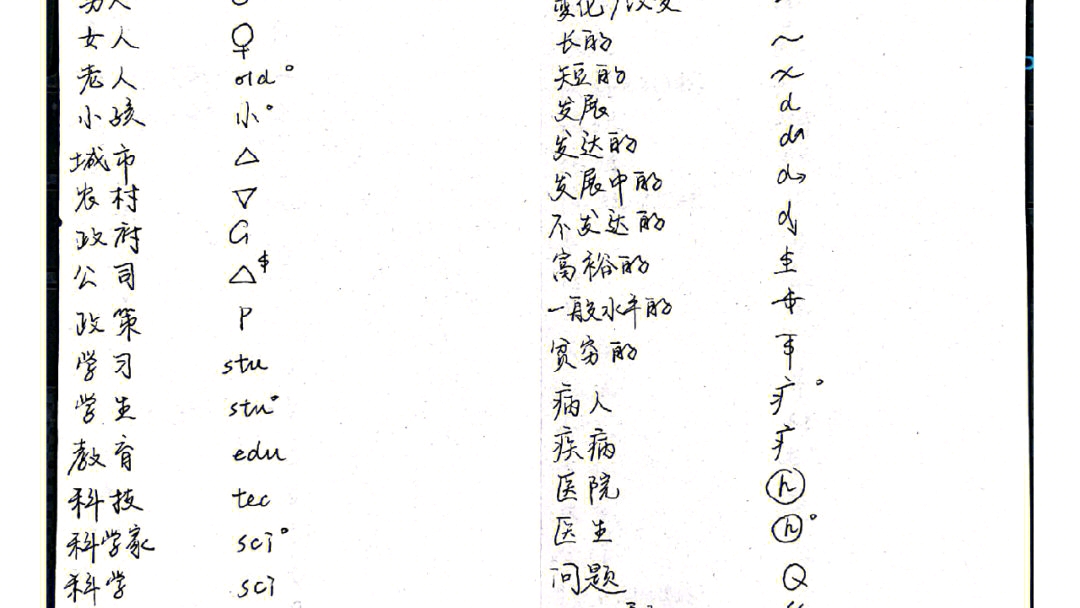 男人
女人 ♀
老人 old°
小孩 小°
城市 △
农村 ▽
政府 G
公司 △$
政策 P
学习 stu
学生 stu°
教育 edu
科技 tec
科学家 sci°
科学 sci
变化/改变
长的 ~
短的
发展 d
发达的 d↑
发展中的 d→
不发达的 d↓
富裕的
一般水平的
贫穷的
病人 疒°
疾病 疒
医院 ⓗ
医生 ⓗ°
问题 Q